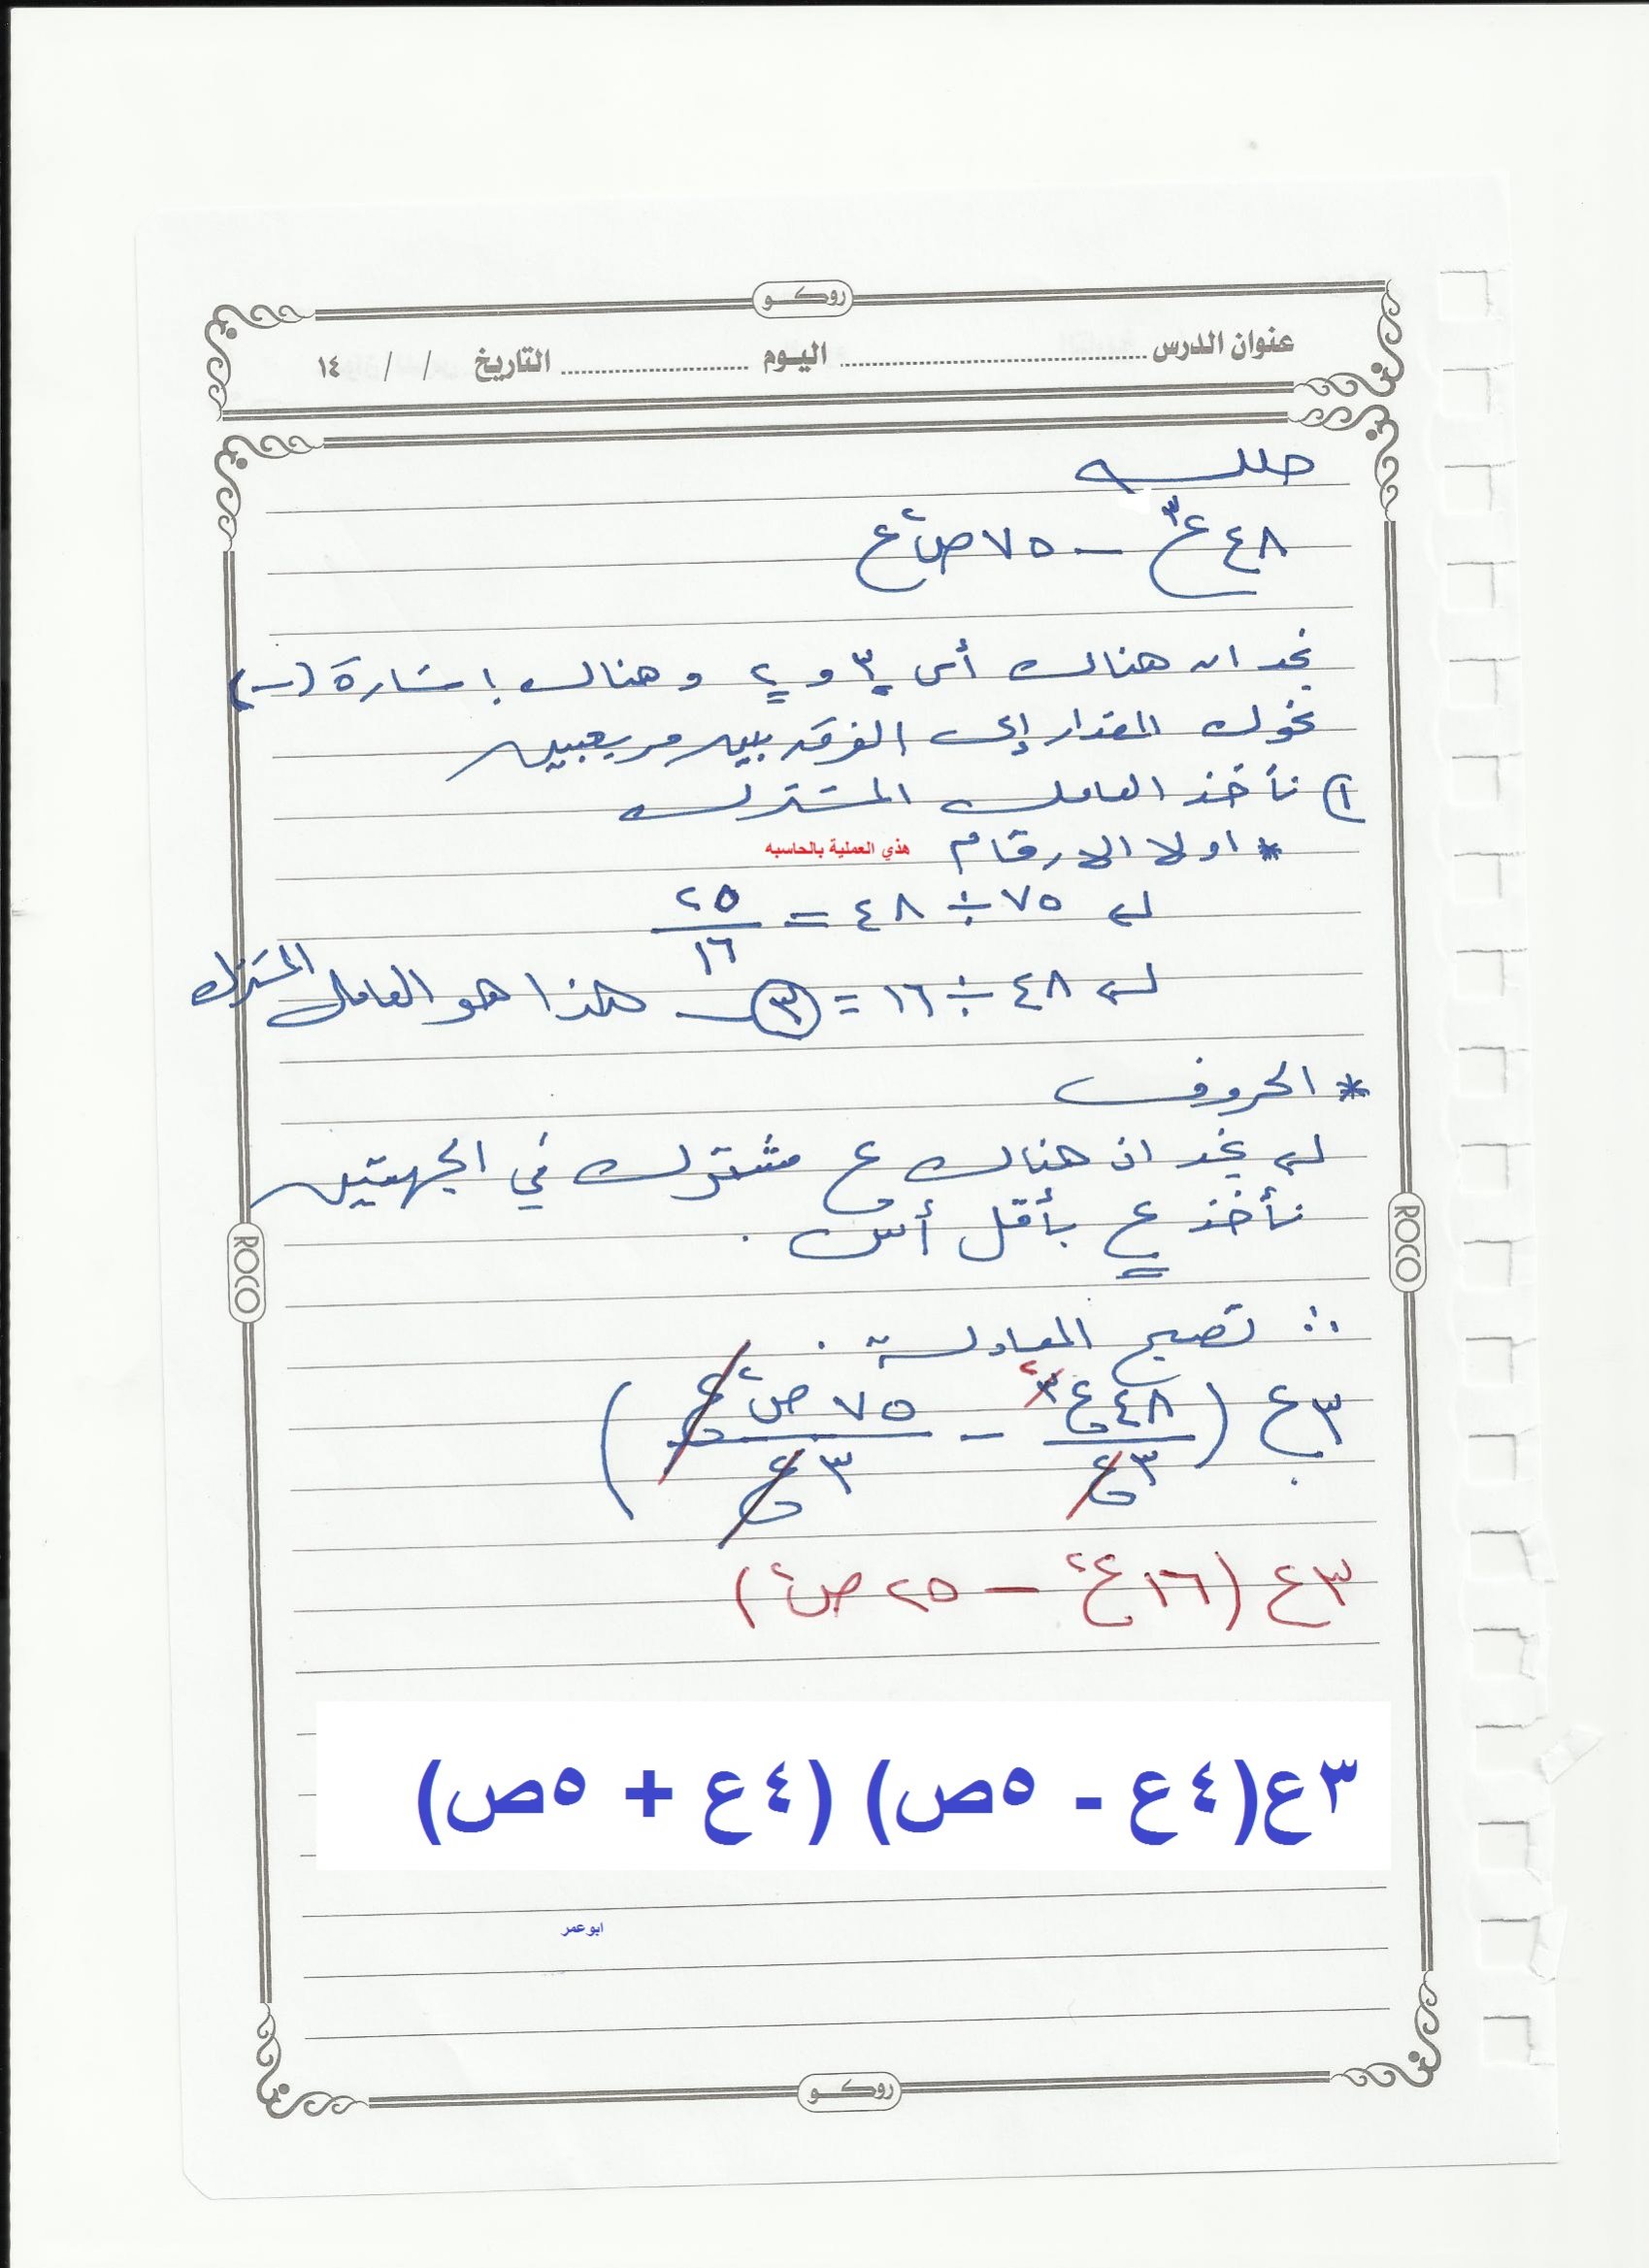 روكـو
عنوان الدرس ........ اليوم ........ التاريخ / / ١٤
حلل
٤٨ع³ - ٧٥ص²ع
نجد ان هناك أس ٣ و ٢ وهناك اشارة (-)
نحول المقدار إلى الفرق بين مربعين
١) نأخذ العامل المشترك
* اولا الارقام هذي العملية بالحاسبه
٧٥ ÷ ٤٨ = ٢٥/١٦
٤٨ ÷ ١٦ = ٣ هذا هو العامل المشترك
* الحروف
نجد ان هناك ع مشترك في الجهتين
نأخذ ع بأقل أس .
∴ تصبح المعادلة .
٣ع (٤٨ع³/٣ع - ٧٥ص²ع/٣ع)
٣ع (١٦ع² - ٢٥ص²)
٣ع(٤ع - ٥ص) (٤ع + ٥ص)
ابو عمر
ROCO
ROCO
روكـو